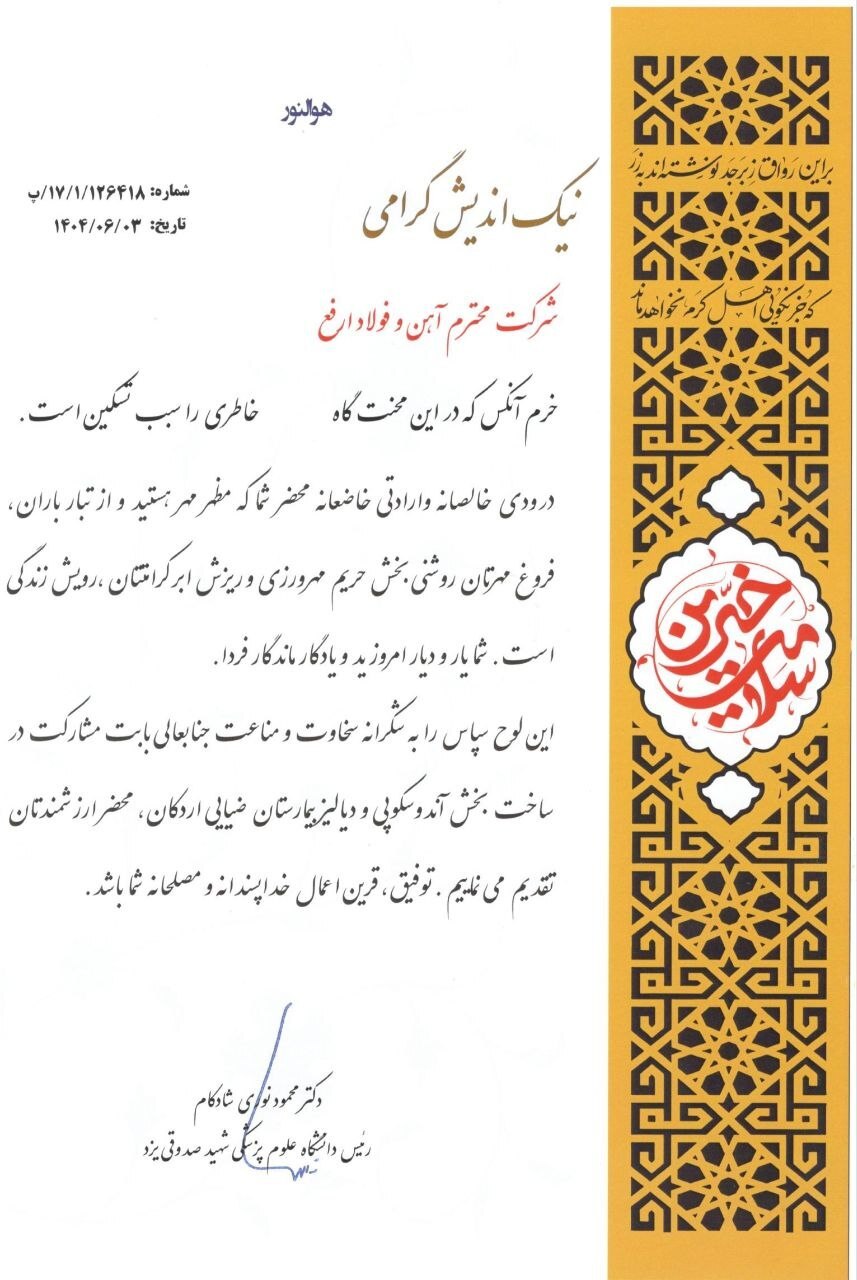 هوالنور
شماره: ۱۷/۱/۱۲۶۴۱۸/پ
تاریخ: ۱۴۰۴/۰۶/۰۳
نیک اندیش گرامی
شرکت محترم آهن و فولاد ارفع
خرم آنکس که در این محنت گاه خاطری را سبب تسکین است.
درودی خالصانه وارادتی خاضعانه محضر شما که مظهر مهر هستید و از تبار باران،
فروغ مهرتان روشنی بخش حریم مهرورزی و ریزش ابر کرامتتان ،رویش زندگی
است. شما یار و دیار امروزید و یادگار ماندگار فردا.
این لوح سپاس را به شکرانه سخاوت و مناعت جنابعالی بابت مشارکت در
ساخت بخش آندوسکوپی و دیالیز بیمارستان ضیایی اردکان، محضر ارزشمندتان
تقدیم می نماییم. توفیق، قرین اعمال خداپسندانه و مصلحانه شما باشد.
دکتر محمود نوری شادکام
رئیس دانشگاه علوم پزشکی شهید صدوقی یزد
براین رواق زبرجد نوشته‌اند به زر
که جز نکویی اهل کرم نخواهد ماند
خیرین سلامت